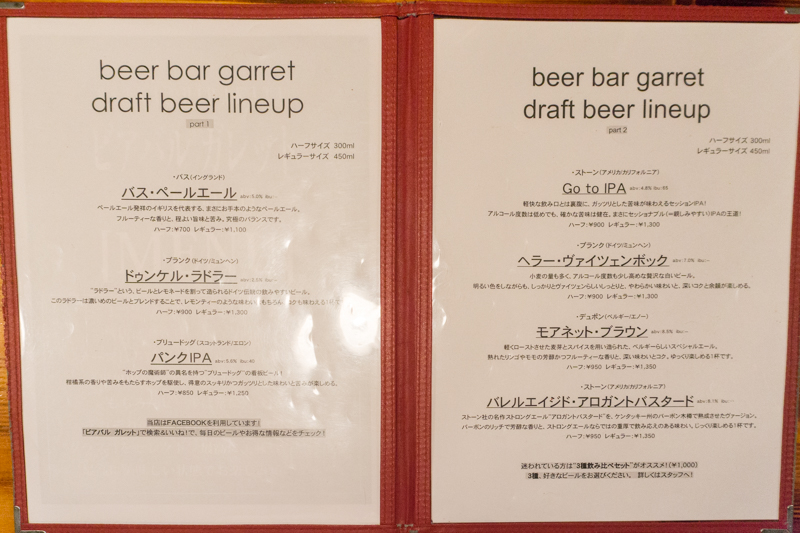 beer bar garret
draft beer lineup
part 1
ハーフサイズ 300ml
レギュラーサイズ 450ml
・バス(イングランド)
バス・ペールエール abv:5.0% ibu:-
ペールエール発祥のイギリスを代表する、まさにお手本のようなペールエール。
フルーティーな香りと、程よい旨味と苦み。究極のバランスです。
ハーフ:¥700 レギュラー:¥1,100
・プランク(ドイツ/ミュンヘン)
ドゥンケル・ラドラー
"ラドラー"という、ビールとレモネードを割って造られるドイツ伝統の飲みやすいビール。
このラドラーは濃いめのビールとブレンドすることで、レモンティーのような味わい。もちろん、コクも味わえる1杯です。
ハーフ:¥900 レギュラー:¥1,300
・ブリュードッグ(スコットランド/エロン)
パンクIPA abv:5.6% ibu:40
"ホップの魔術師"の異名を持つ"ブリュードッグ"の看板ビール!
柑橘系の香りや苦みをもたらすホップを駆使し、得意のスッキリかつガッツリとした味わいと苦みが楽しめる。
ハーフ:¥850 レギュラー:¥1,250
当店はFACEBOOKを利用しています!
「ビアバル ガレット」で検索&いいね!で、毎日のビールやお得な情報などをチェック!
beer bar garret
draft beer lineup
part 2
ハーフサイズ 300ml
レギュラーサイズ 450ml
・ストーン(アメリカ/カリフォルニア)
Go to IPA abv:4.8% ibu:65
軽快な飲み口とは裏腹に、ガッツリとした苦味が味わえるセッションIPA!
アルコール度数は低めでも、確かな苦味は健在。まさにセッショナブル(=親しみやすい)IPAの王道!
ハーフ:¥900 レギュラー:¥1,300
・プランク(ドイツ/ミュンヘン)
ヘラー・ヴァイツェンボック abv:7.0% ibu:-
小麦の量も多く、アルコール度数も少し高めな贅沢な白いビール。
明るい色をしながらも、しっかりとヴァイツェンらしいしっとりと、やわらかい味わいと、深いコクと余韻が楽しめる。
ハーフ:¥900 レギュラー:¥1,300
・デュポン(ベルギー/エノー)
モアネット・ブラウン abv:8.5% ibu:-
軽くローストさせた麦芽とスパイスを用い造られた、ベルギーらしいスペシャルエール。
熟れたリンゴやモモの芳醇かつフルーティーな香りと、深い味わいとコク。ゆっくり楽しめる1杯です。
ハーフ:¥950 レギュラー:¥1,350
・ストーン(アメリカ/カリフォルニア)
バレルエイジド・アロガントバスタード abv:8.1% ibu:-
ストーン社の名作ストロングエール"アロガントバスタード"を、ケンタッキー州のバーボン木樽で熟成させたヴァージョン。
バーボンのリッチで芳醇な香りと、ストロングエールならではの重厚で飲み応えのある味わい。じっくり楽しめる1杯です。
ハーフ:¥950 レギュラー:¥1,350
迷われている方は"3種飲み比べセット"がオススメ!(¥1,000)
3種、好きなビールをお選びください。 詳しくはスタッフへ!